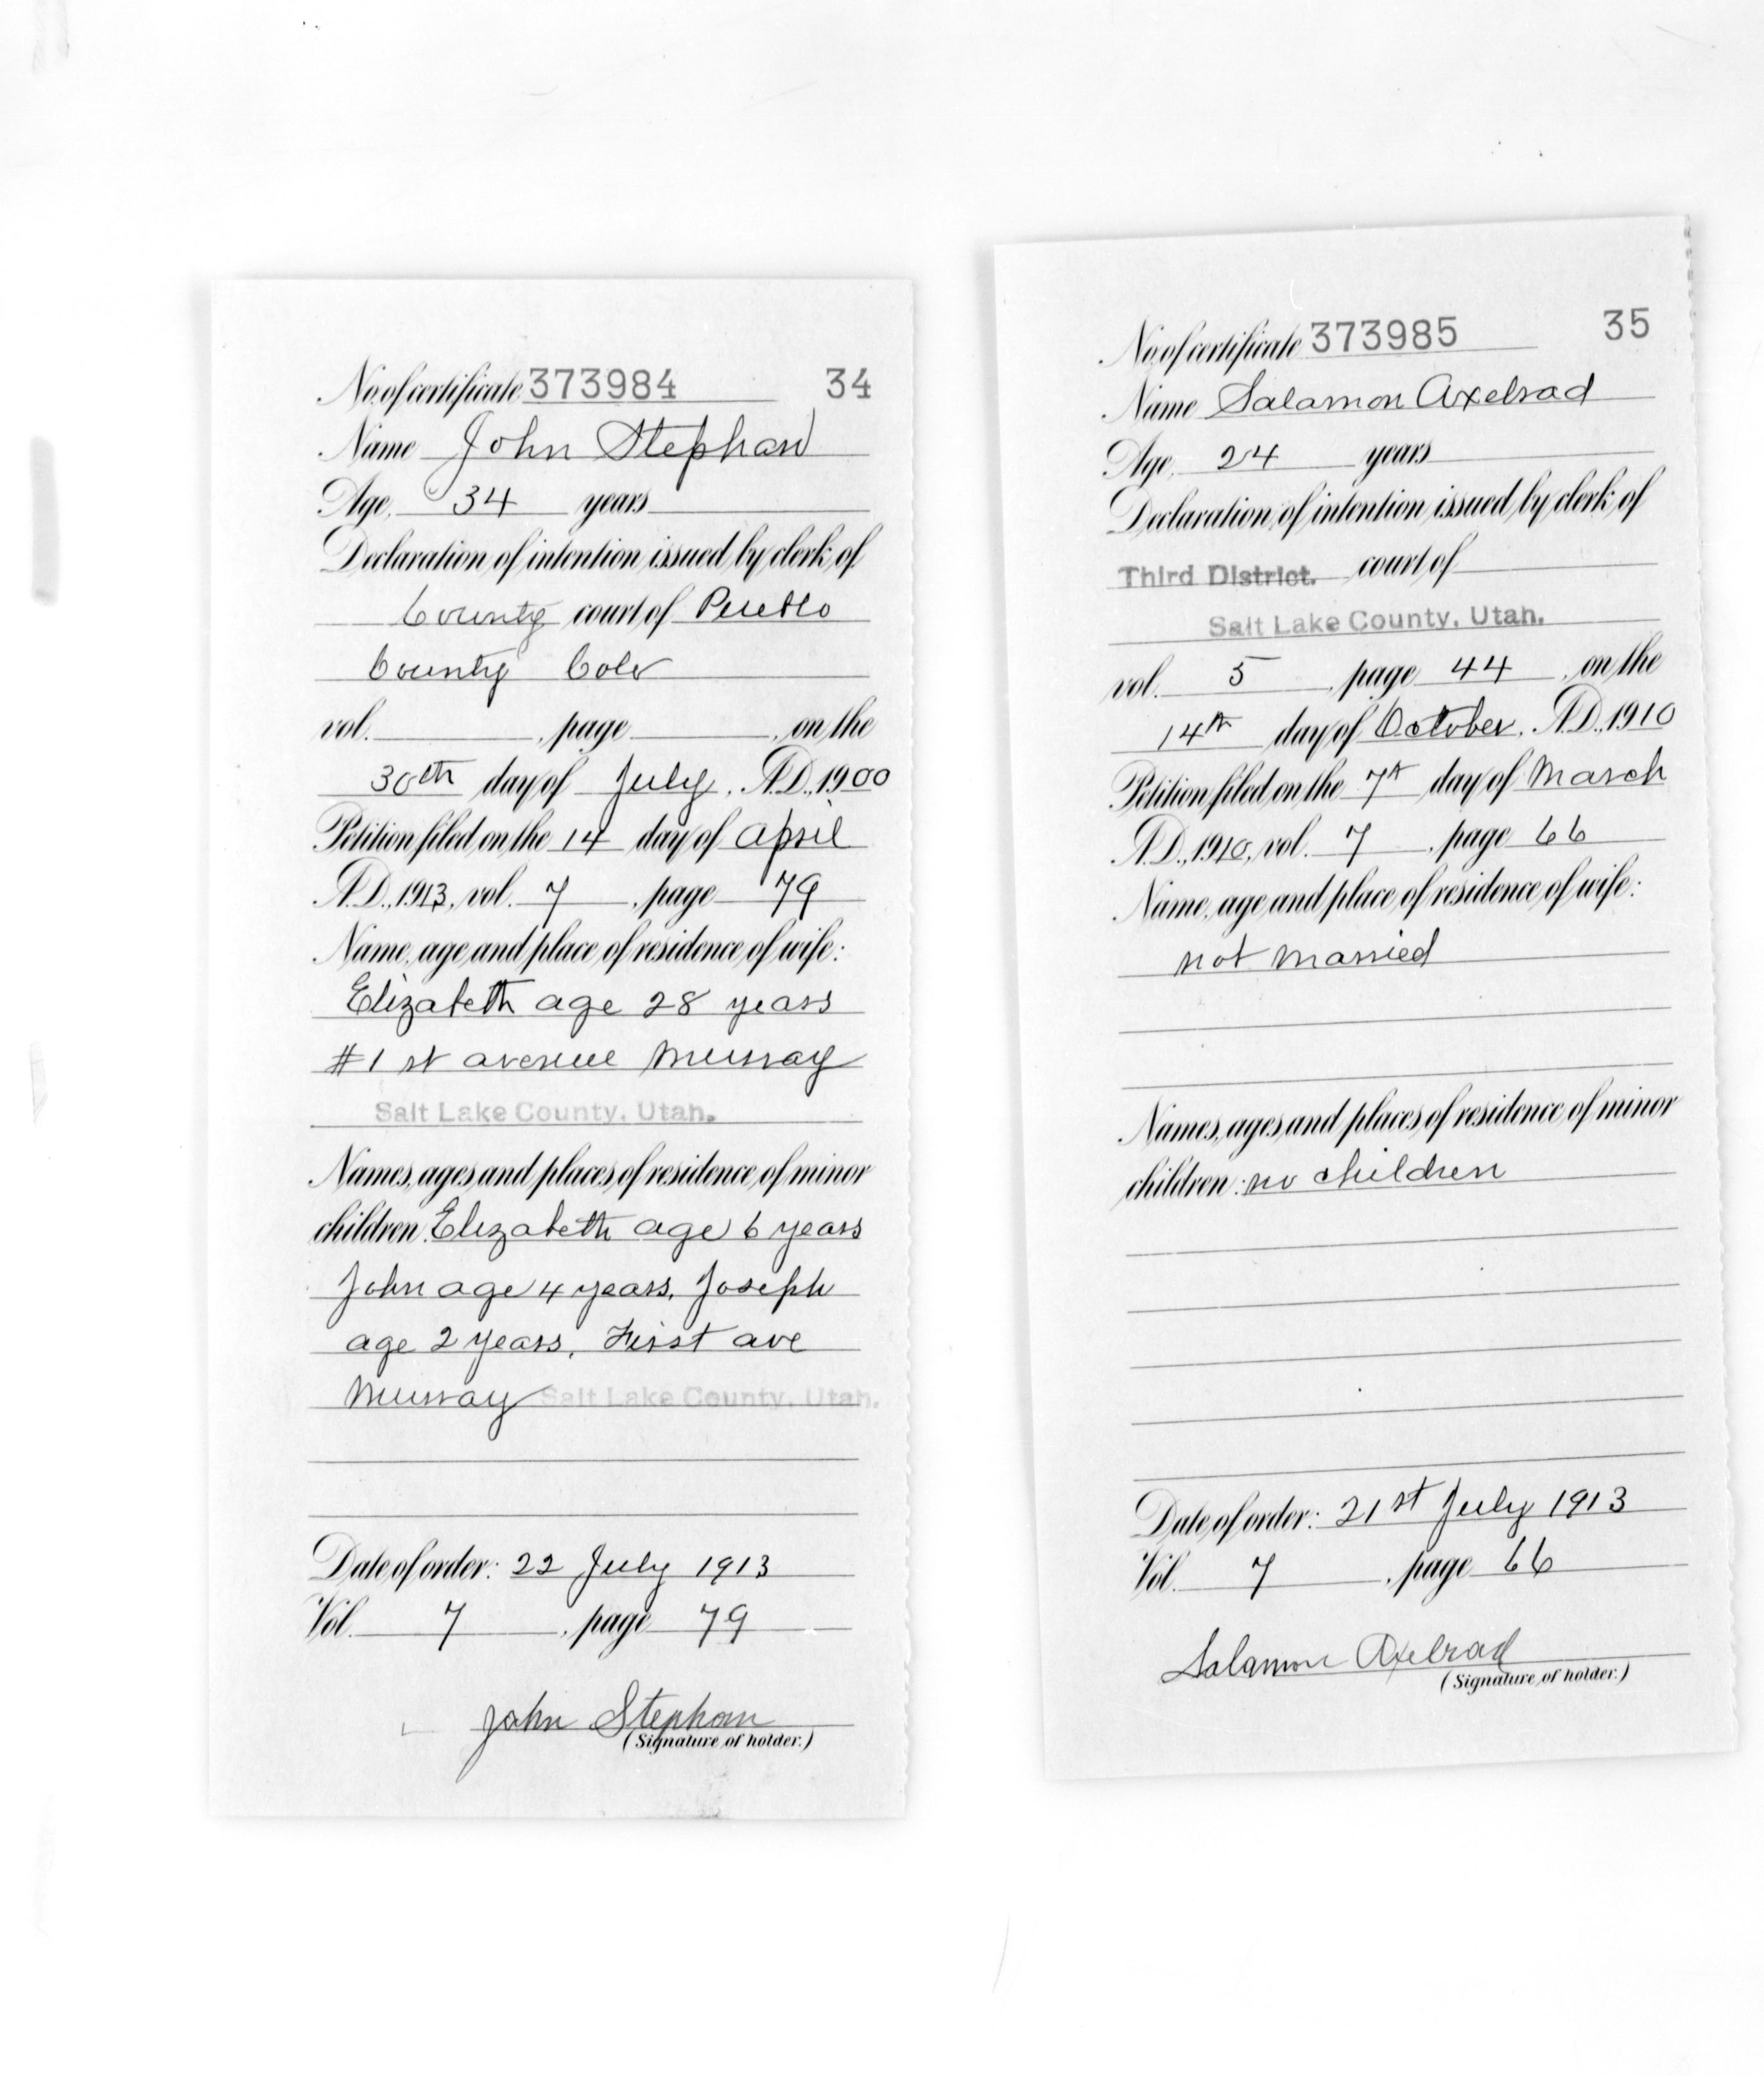 No. of certificate 373984 34
Name John Stephan
Age, 34 years
Declaration of intention issued by clerk of
County court of Pueblo
County Colo
vol. , page , on the
30th day of July, A.D., 1900
Petition filed on the 14 day of April
A.D., 1913, vol. 7, page 79
Name, age and place of residence of wife:
Elizabeth age 28 years
#1 st avenue Murray
Salt Lake County, Utah.
Names, ages and places of residence of minor
children. Elizabeth age 6 years
John age 4 years, Joseph
age 2 years, First ave
Murray Salt Lake County, Utah.
Date of order: 22 July 1913
Vol. 7, page 79
John Stephan
(Signature of holder.)
No. of certificate 373985 35
Name Salamon Axelrad
Age, 24 years
Declaration of intention issued by clerk of
Third District. court of
Salt Lake County, Utah.
vol. 5, page 44, on the
14th day of October, A.D., 1910
Petition filed on the 7th day of March
A.D., 1910, vol. 7, page 66
Name, age and place of residence of wife:
not married
Names, ages and places of residence of minor
children: no children
Date of order: 21st July 1913
Vol. 7, page 66
Salamon Axelrad
(Signature of holder.)